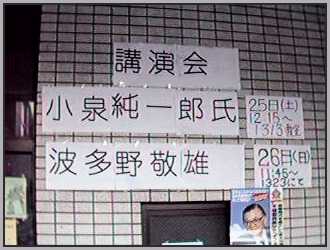 講演会
小泉純一郎氏
25日(土)
12:15~
1313教室
波多野敬雄
26日(日)
11:45~
1323にて